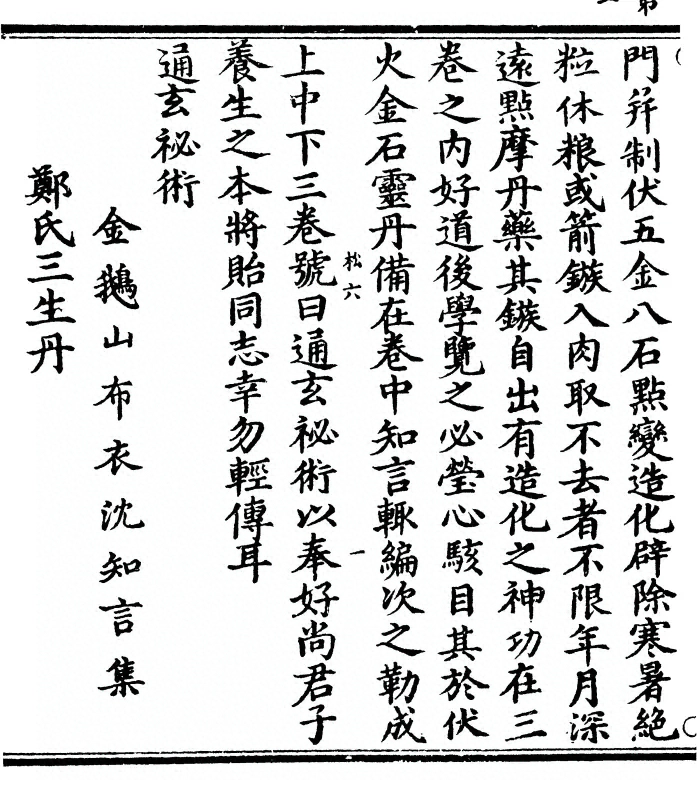 門并制伏五金八石點變造化辟除寒暑絕
粒休粮或箭鏃入肉取不去者不限年月深
遠點摩丹藥其鏃自出有造化之神功在三
卷之內好道後學覽之必瑩心駭目其於伏
火金石靈丹備在卷中知言輒編次之勒成
松六
一
上中下三卷號曰通玄祕術以奉好尚君子
養生之本將貽同志幸勿輕傳耳
通玄祕術
金鵝山布衣沈知言集
鄭氏三生丹